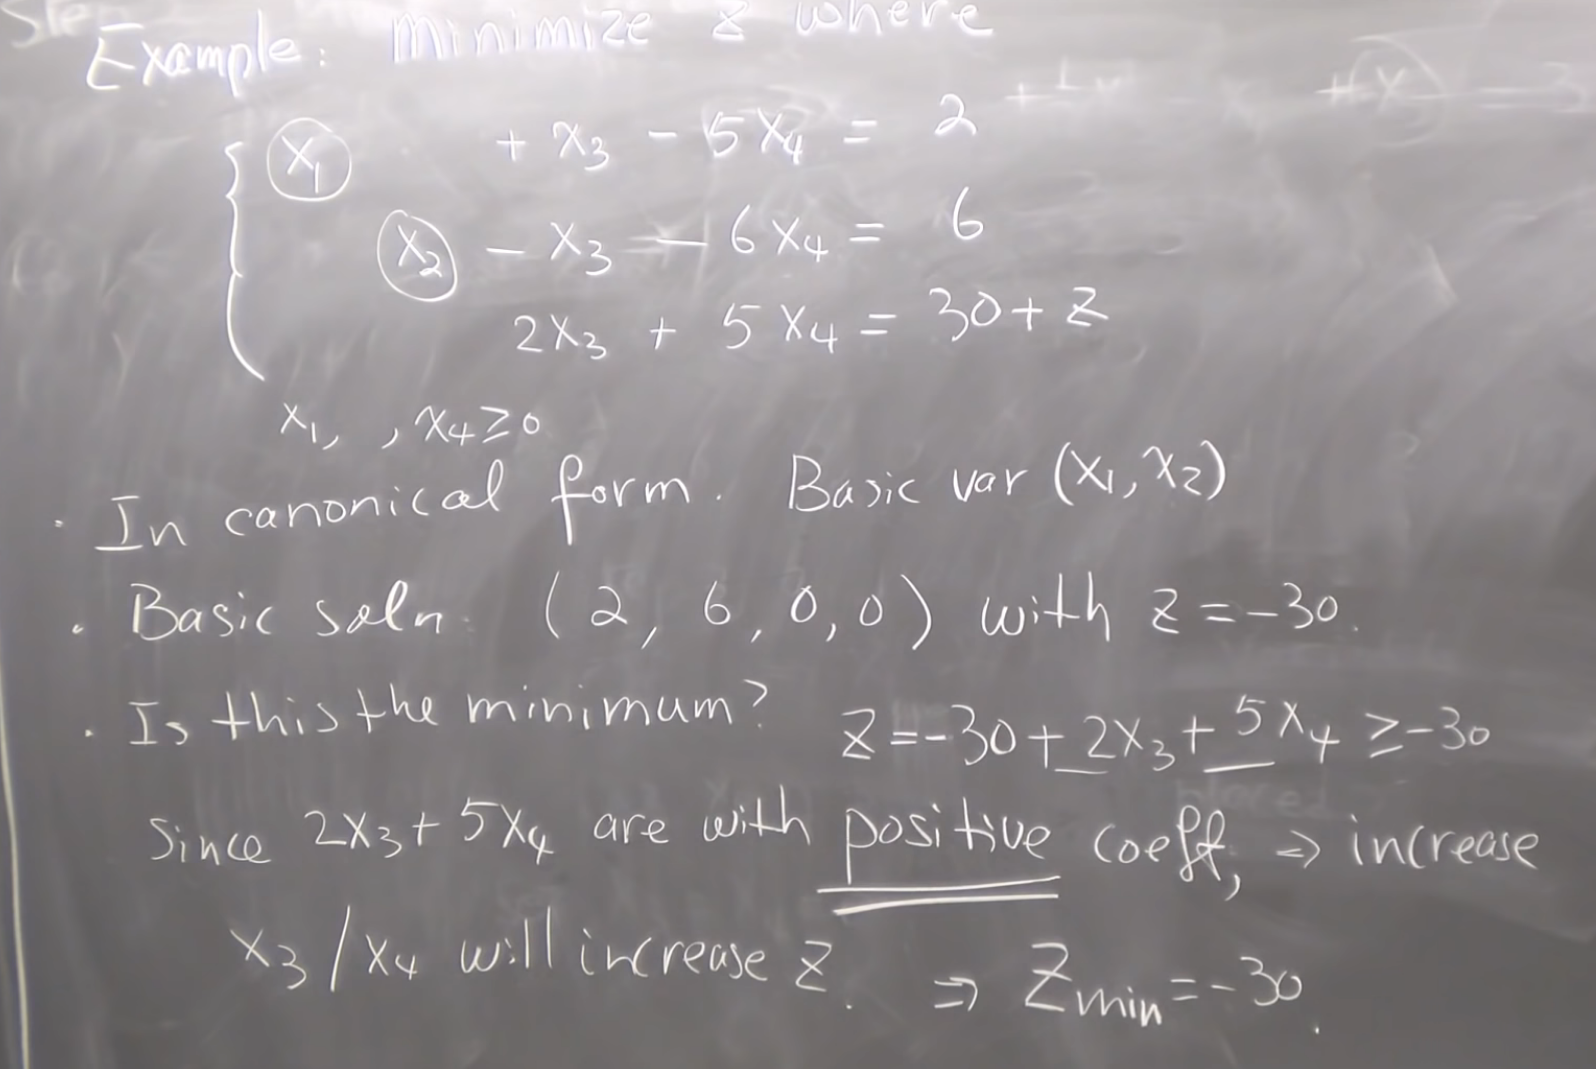 Example: minimize z where
x₁ + x₃ - 5x₄ = 2
x₂ - x₃ - 6x₄ = 6
2x₃ + 5x₄ = 30 + z
x₁, , x₄ ≥ 0
· In canonical form. Basic var (x₁, x₂)
· Basic soln. (2, 6, 0, 0) with z = -30.
· Is this the minimum? z = -30 + 2x₃ + 5x₄ ≥ -30
Since 2x₃ + 5x₄ are with positive coeff, ⇒ increase
x₃ / x₄ will increase z. ⇒ Zmin = -30.